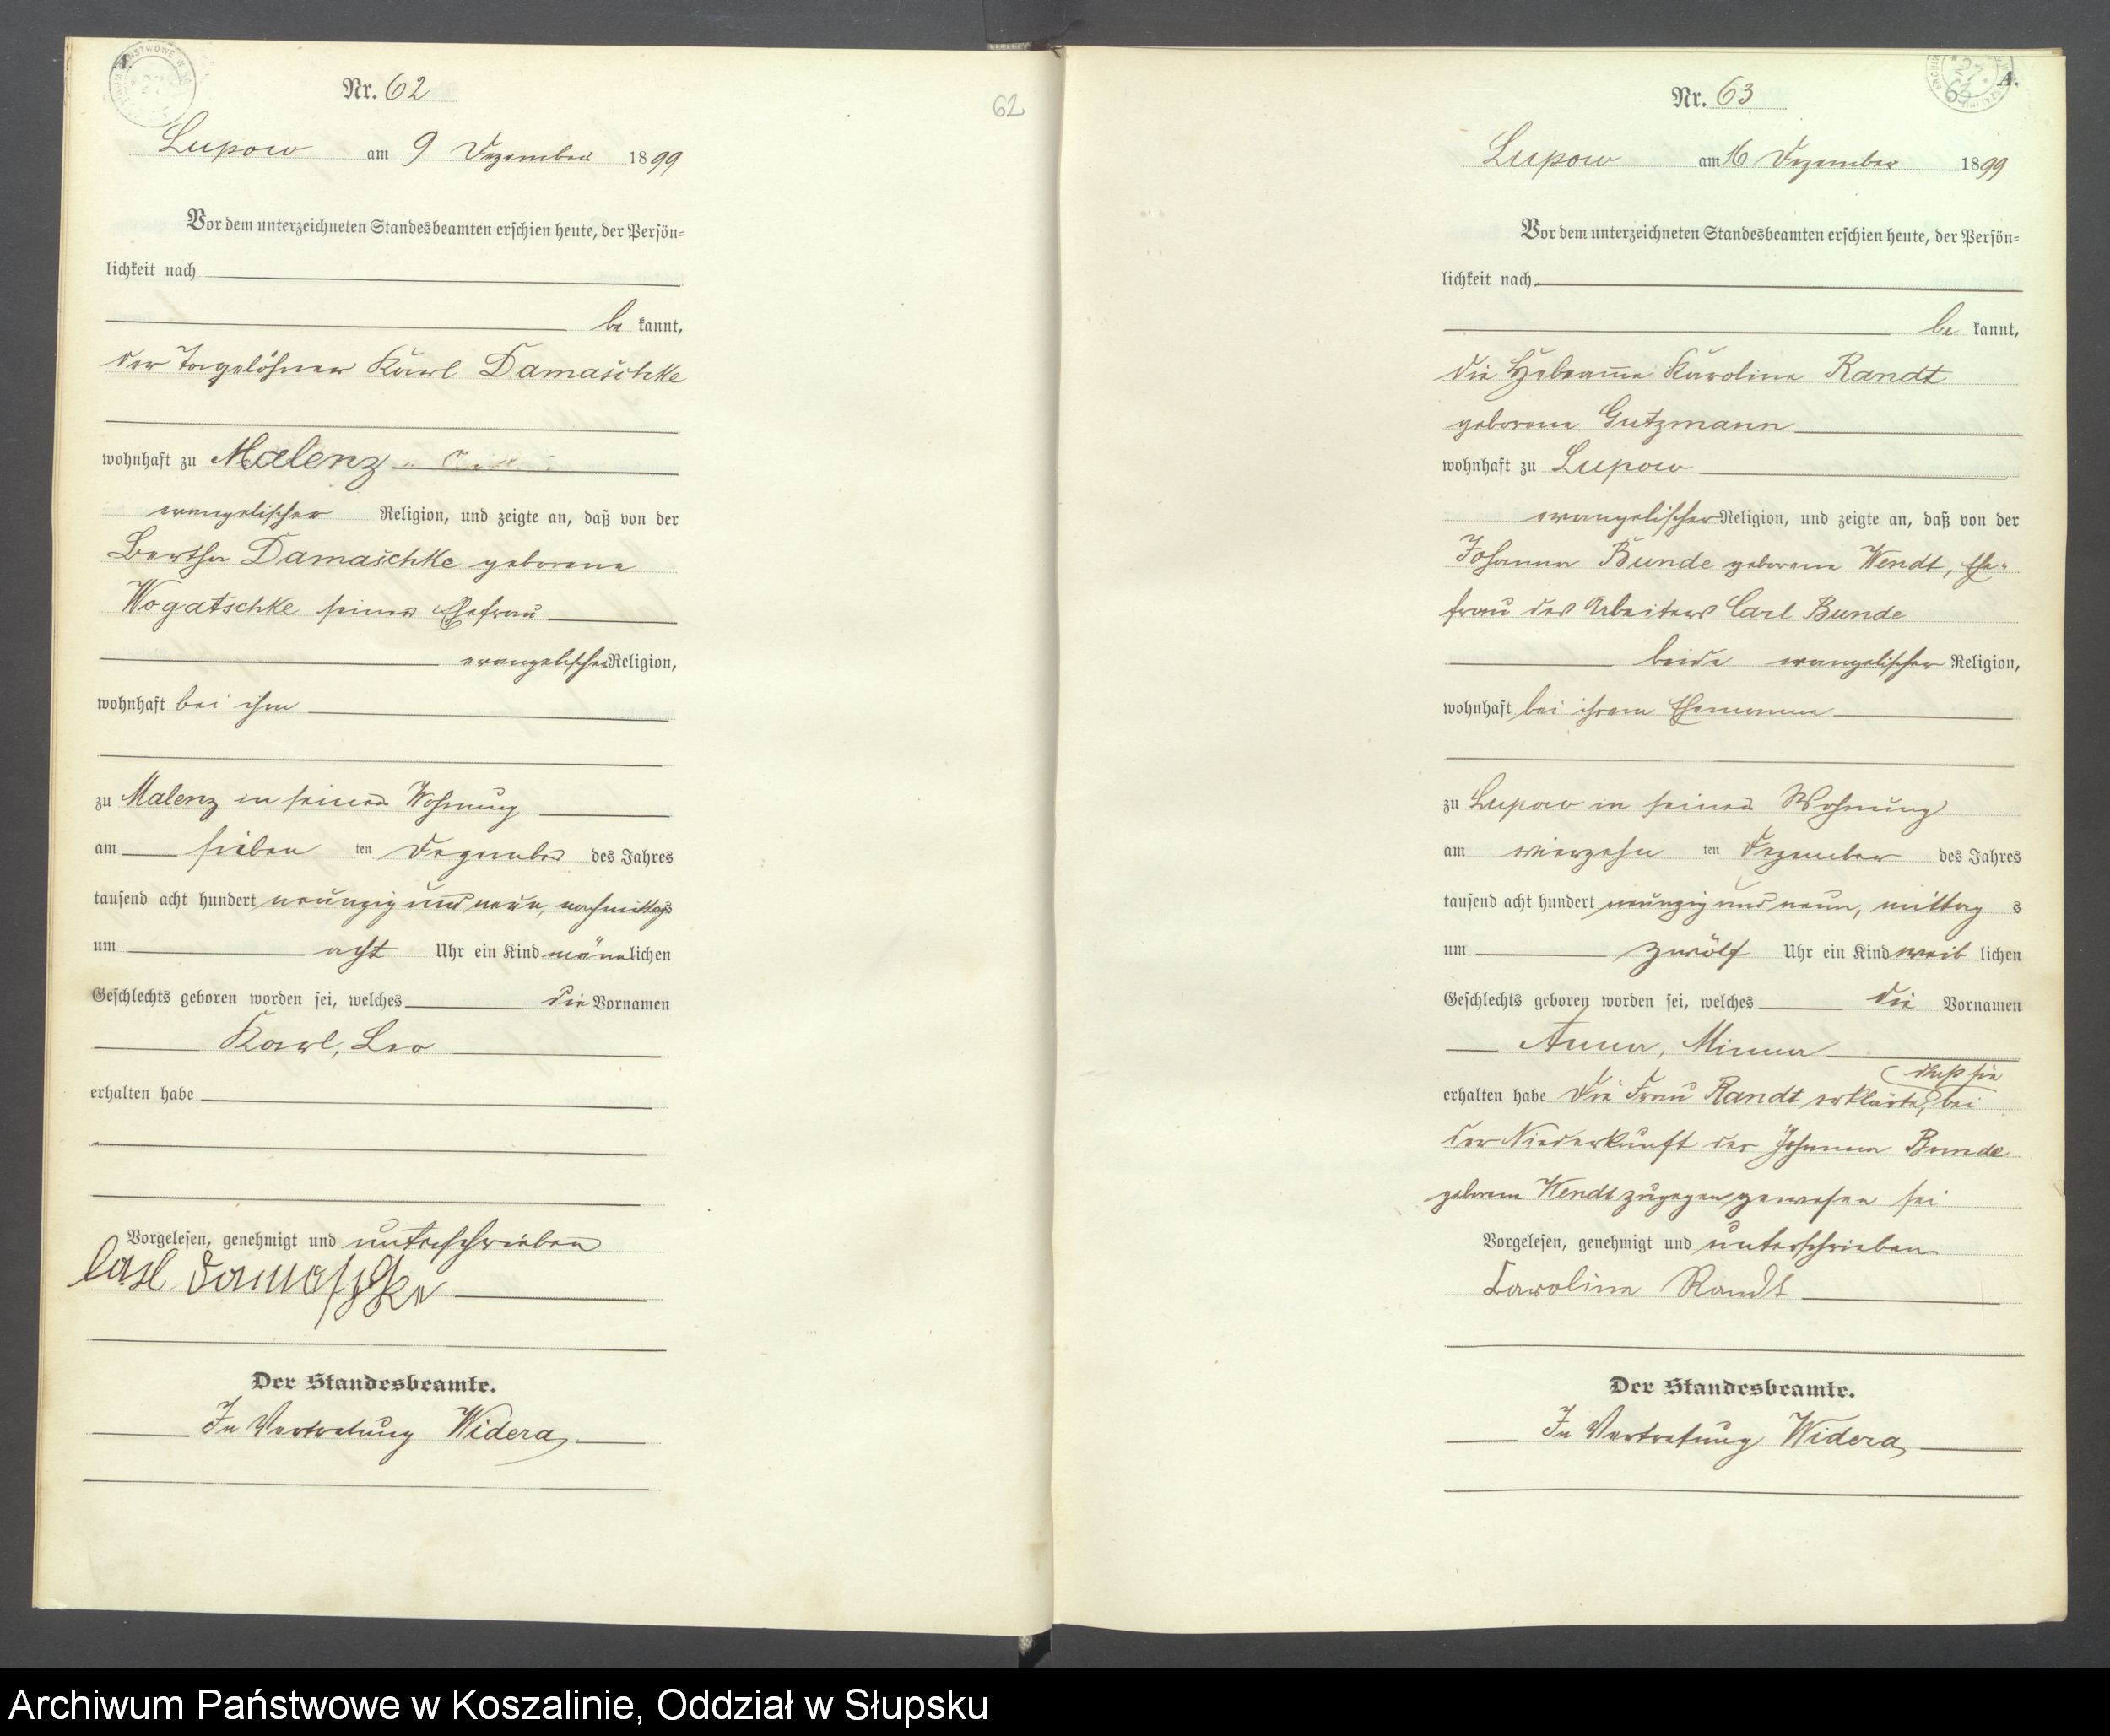 Nr. 62
Lupow am 9 Dezember 1899
Vor dem unterzeichneten Standesbeamten erschien heute, der Persön-
lichkeit nach
be kannt,
der Tagelöhner Karl Damaschke
wohnhaft zu Malenz
evangelischer Religion, und zeigte an, daß von der
Bertha Damaschke geborene
Wogatschke seiner Ehefrau
evangelischer Religion,
wohnhaft bei ihm
zu Malenz in seiner Wohnung
am sieben ten Dezember des Jahres
tausend acht hundert neunzig und neun, nachmittags
um acht Uhr ein Kind männlichen
Geschlechts geboren worden sei, welches die Vornamen
Karl, Leo
erhalten habe
Vorgelesen, genehmigt und unterschrieben
Carl Damaschke
Der Standesbeamte.
In Vertretung Widera
62
Nr. 63
A.
63
Lupow am 16 Dezember 1899
Vor dem unterzeichneten Standesbeamten erschien heute, der Persön-
lichkeit nach
be kannt,
die Hebeam̅e Karoline Randt
geborene Gutzmann
wohnhaft zu Lupow
evangelischer Religion, und zeigte an, daß von der
Johanna Bunde geborene Wendt, Ehe-
frau des Arbeiters Carl Bunde
beide evangelischer Religion,
wohnhaft bei ihrem Ehemanne
zu Lupow in seiner Wohnung
am vierzehn ten Dezember des Jahres
tausend acht hundert neunzig und neun, mittag s
um zwölf Uhr ein Kind weib lichen
Geschlechts geboren worden sei, welches die Vornamen
Anna, Minna
daß sie
erhalten habe Die Frau Randt erklärte, bei
der Niederkunft der Johanna Bunde
geborene Wendt zugegen gewesen sei
Vorgelesen, genehmigt und unterschrieben
Caroline Randt
Der Standesbeamte.
In Vertretung Widera
Archiwum Państwowe w Koszalinie, Oddział w Słupsku